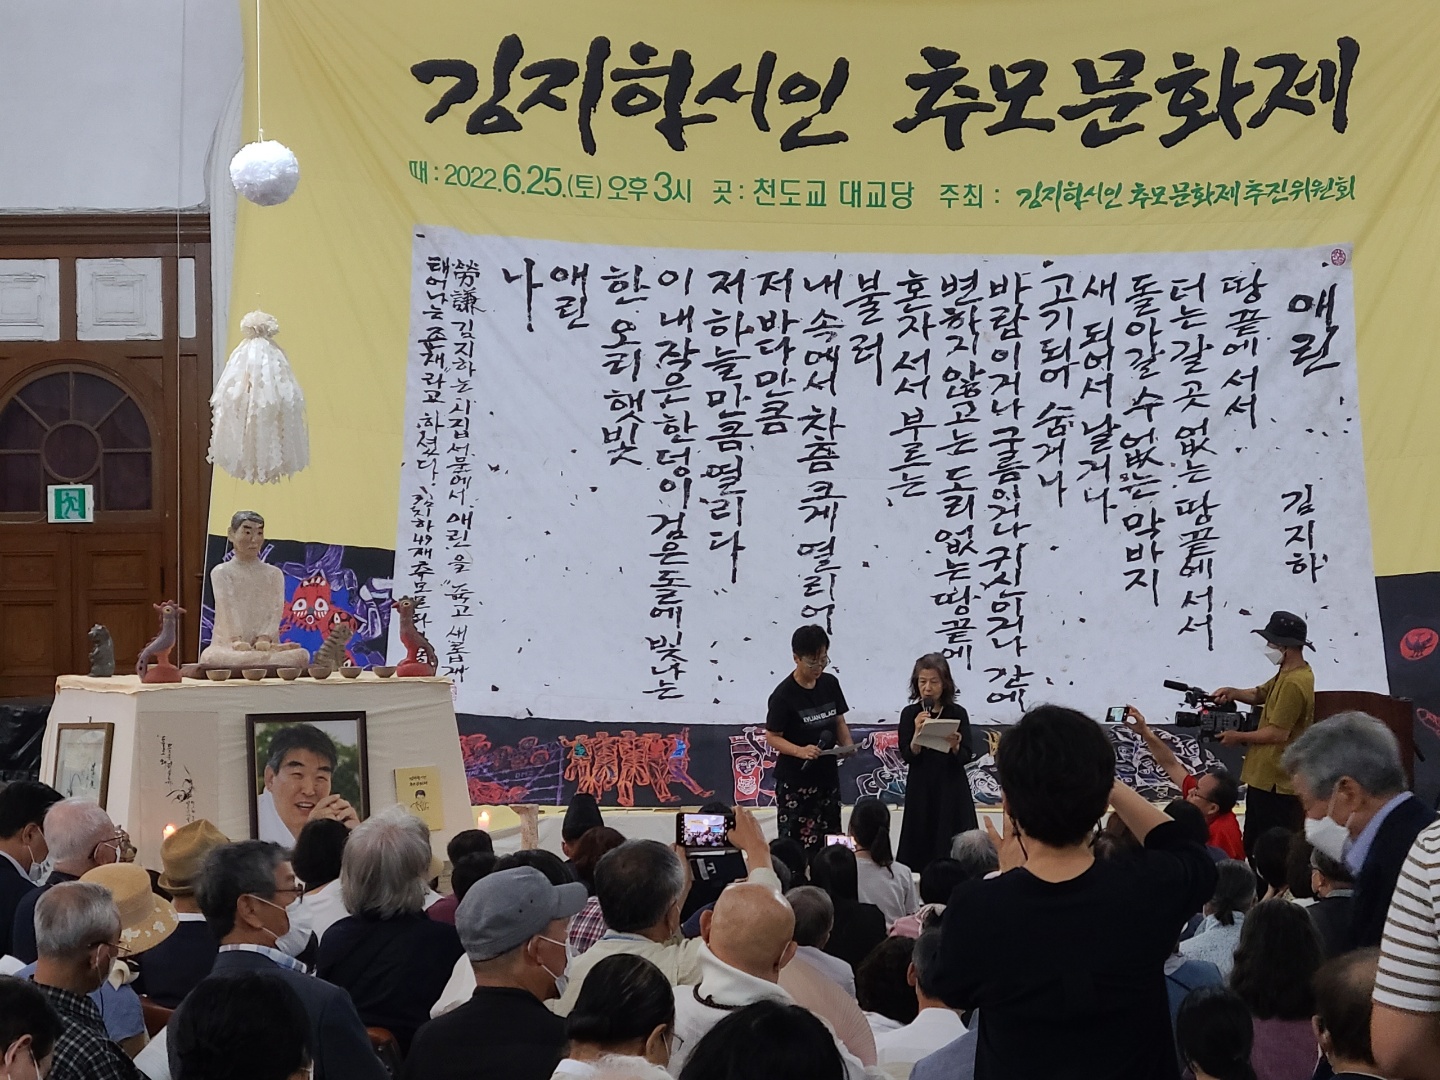 김지하시인 추모문화제
때 : 2022.6.25.(토) 오후 3시 곳 : 천도교 대교당 주최 : 김지하시인 추모문화제 추진위원회
애린
김지하
땅 끝에 서서
더는 갈 곳 없는 땅 끝에 서서
돌아갈 수 없는 막바지
새 되어서 날거나
고기 되어 숨거나
바람이거나 구름이거나 귀신이거나 간에
변하지 않고는 도리 없는 땅 끝에
혼자 서서 부르는
불러
내 속에서 차츰 크게 열리어
저 바다만큼
저 하늘만큼 열리다
이 내 작은 한 덩이 검은 돌에 빛나는
한 오리 햇빛
애린
나
勞謙 김지하는 시집 서문에서 애린을 "죽고 새롭게
태어나는 존재라고 하셨다. 김지하 49재 추모문화제
XYLIAN BLACK